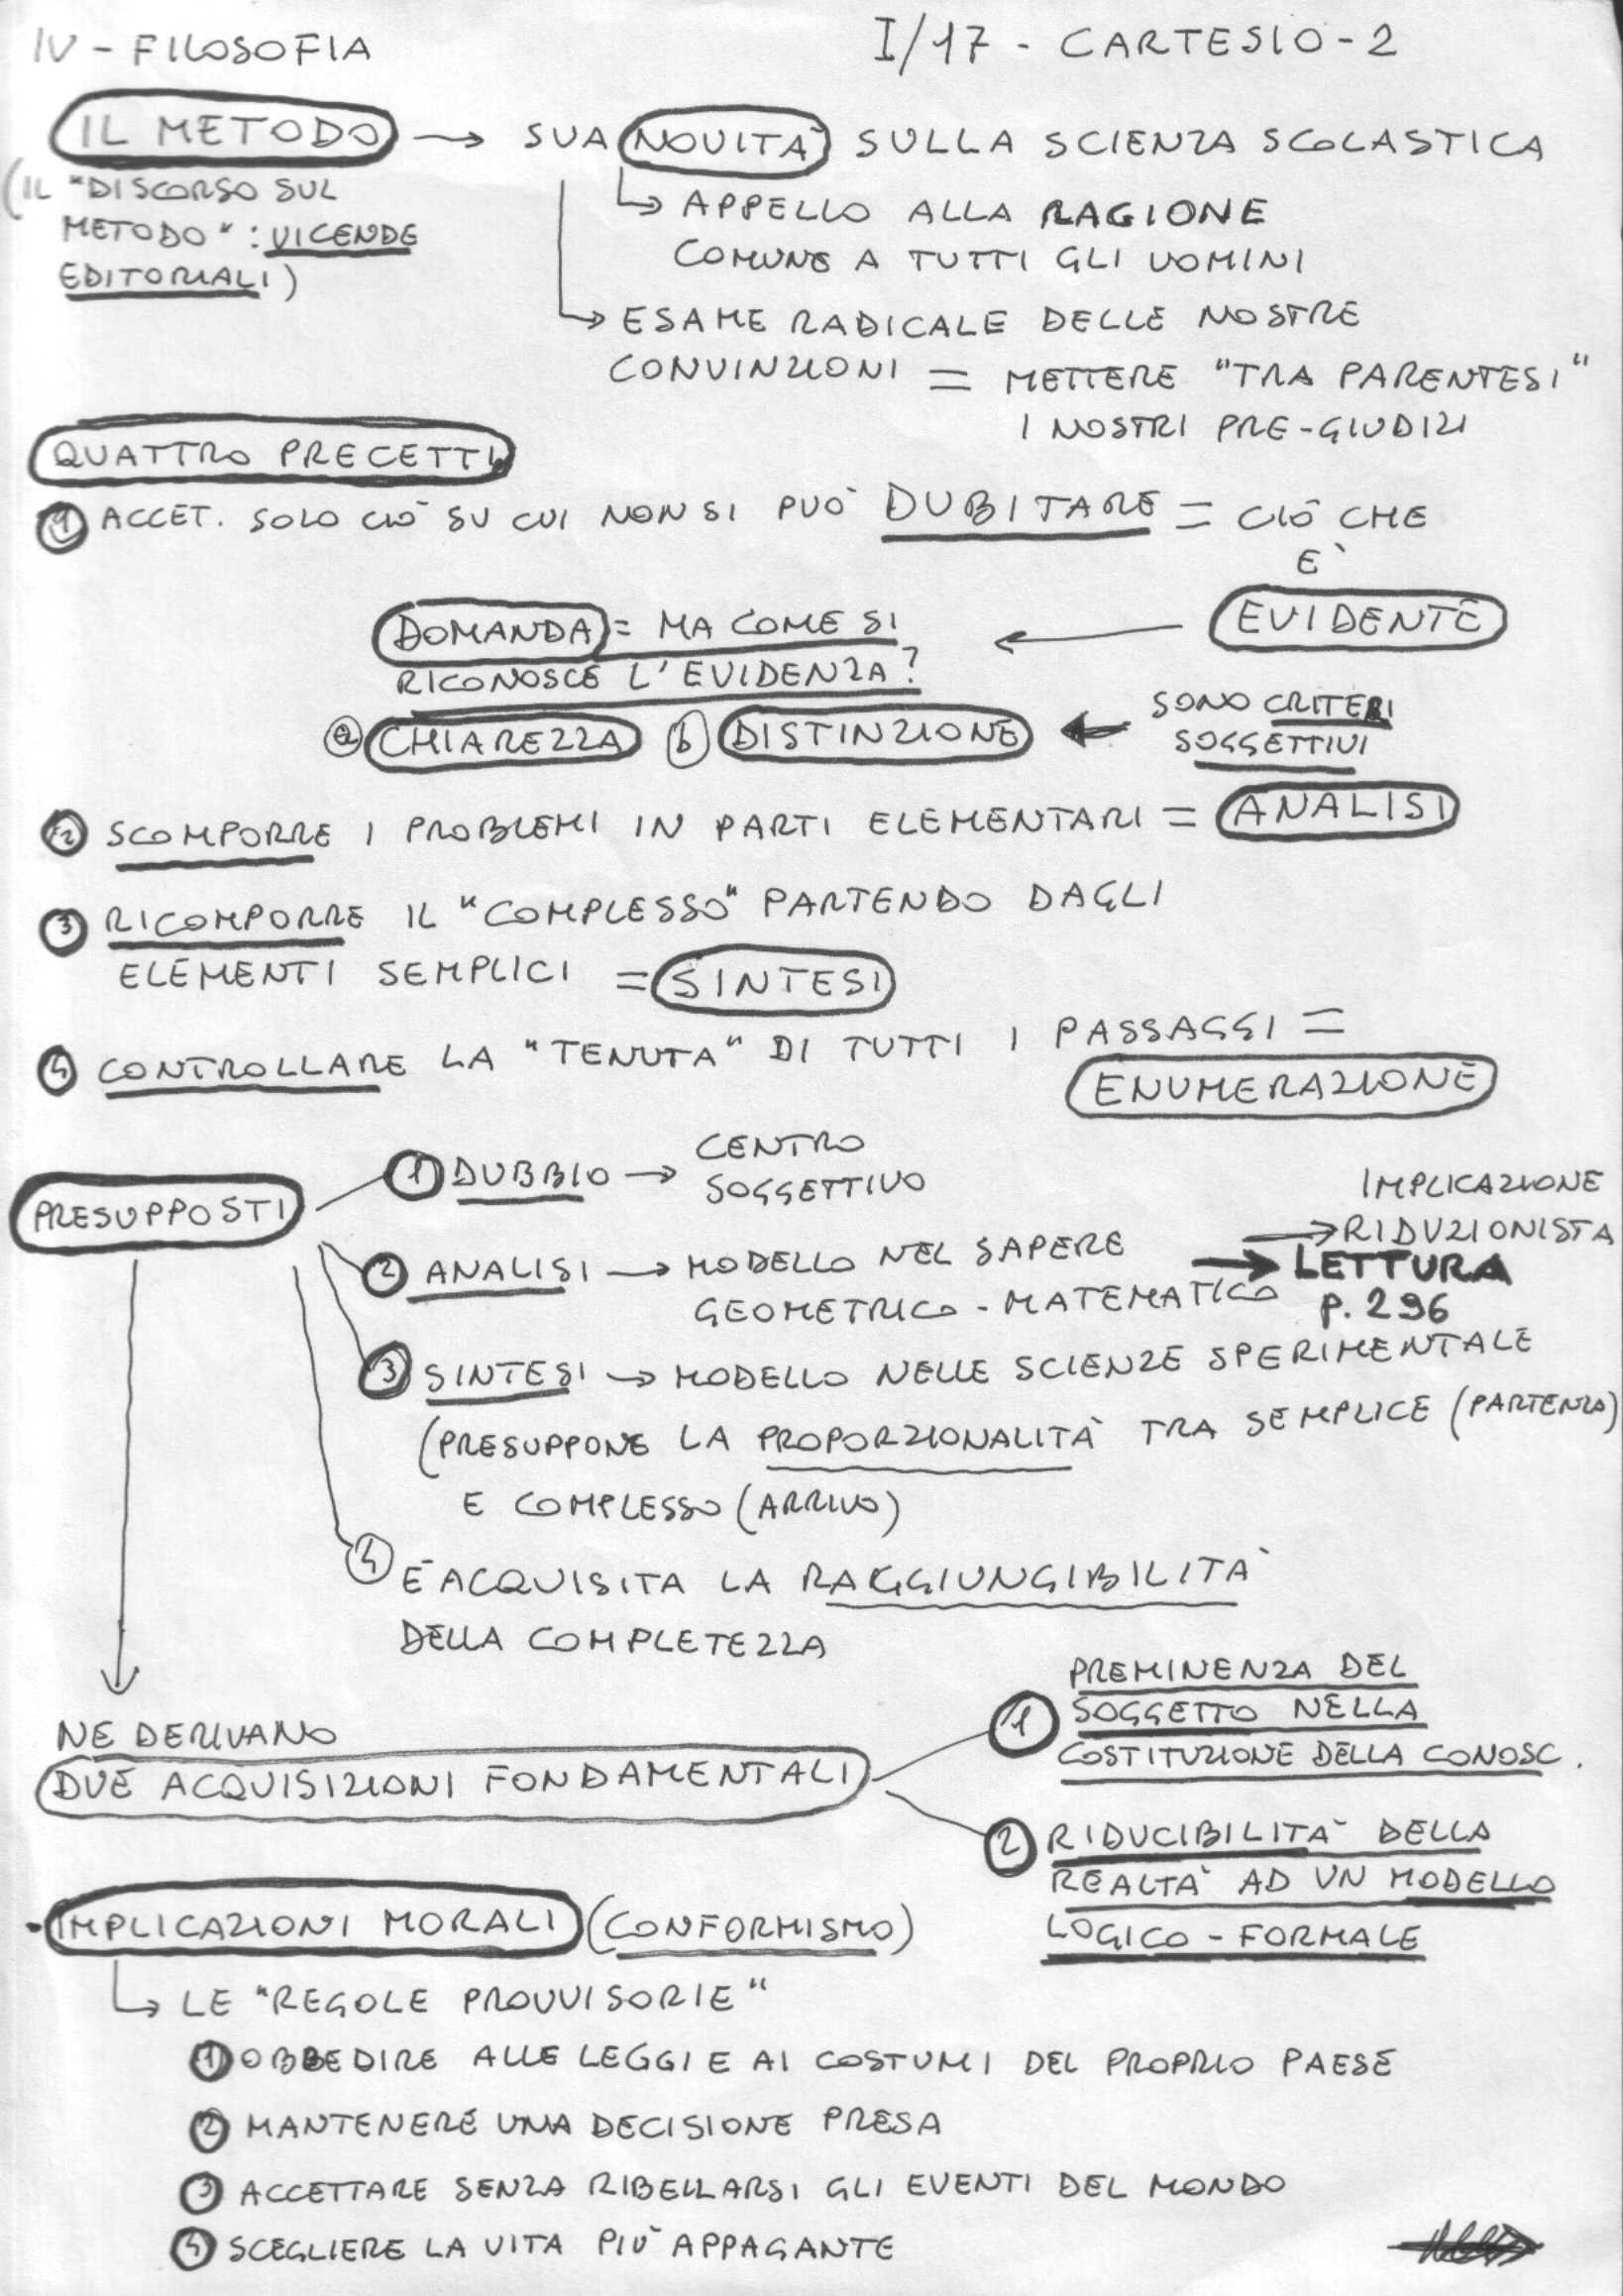 IV - FILOSOFIA
I/17 - CARTESIO - 2
IL METODO → SUA NOVITÀ SULLA SCIENZA SCOLASTICA
(IL "DISCORSO SUL
METODO": VICENDE
EDITORIALI)
APPELLO ALLA RAGIONE
COMUNE A TUTTI GLI UOMINI
ESAME RADICALE DELLE NOSTRE
CONVINZIONI = METTERE "TRA PARENTESI"
I NOSTRI PRE-GIUDIZI
QUATTRO PRECETTI
1 ACCET. SOLO CIÒ SU CUI NON SI PUÒ DUBITARE = CIÒ CHE
E'
EVIDENTE
DOMANDA = MA COME SI
RICONOSCE L'EVIDENZA?
SONO CRITERI
SOGGETTIVI
a CHIAREZZA b DISTINZIONE
2 SCOMPORRE I PROBLEMI IN PARTI ELEMENTARI = ANALISI
3 RICOMPORRE IL "COMPLESSO" PARTENDO DAGLI
ELEMENTI SEMPLICI = SINTESI
4 CONTROLLARE LA "TENUTA" DI TUTTI I PASSAGGI =
ENUMERAZIONE
PRESUPPOSTI
1 DUBBIO → CENTRO
SOGGETTIVO
2 ANALISI → MODELLO NEL SAPERE
GEOMETRICO-MATEMATICO
→ IMPLICAZIONE
RIDUZIONISTA
→ LETTURA
P. 296
3 SINTESI → MODELLO NELLE SCIENZE SPERIMENTALE
(PRESUPPONE LA PROPORZIONALITÀ TRA SEMPLICE (PARTENZA)
E COMPLESSO (ARRIVO)
4 È ACQUISITA LA RAGGIUNGIBILITÀ
DELLA COMPLETEZZA
NE DERIVANO
DUE ACQUISIZIONI FONDAMENTALI
1 PREMINENZA DEL
SOGGETTO NELLA
COSTITUZIONE DELLA CONOSC.
2 RIDUCIBILITÀ DELLA
REALTÀ AD UN MODELLO
LOGICO-FORMALE
- IMPLICAZIONI MORALI (CONFORMISMO)
LE "REGOLE PROVVISORIE"
1 OBBEDIRE ALLE LEGGI E AI COSTUMI DEL PROPRIO PAESE
2 MANTENERE UNA DECISIONE PRESA
3 ACCETTARE SENZA RIBELLARSI GLI EVENTI DEL MONDO
4 SCEGLIERE LA VITA PIÙ APPAGANTE